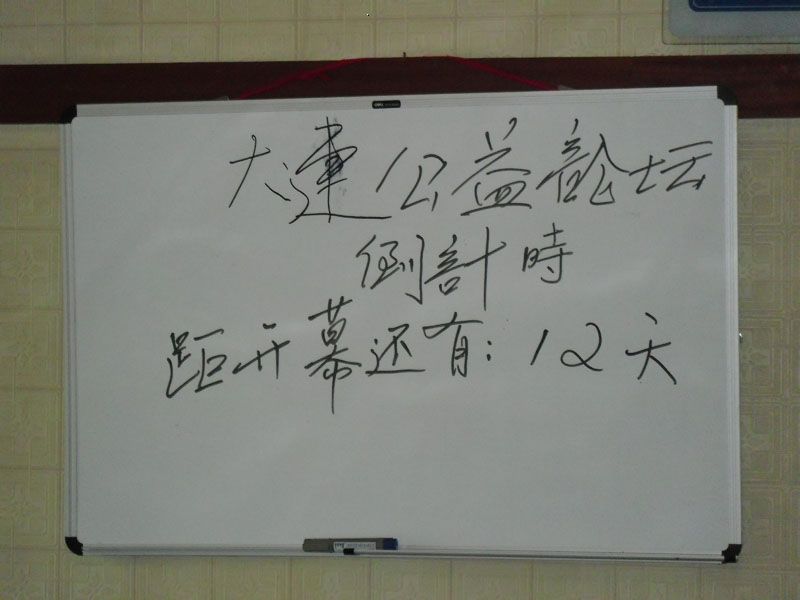 大連公益論坛
倒計時
距开幕还有：12天